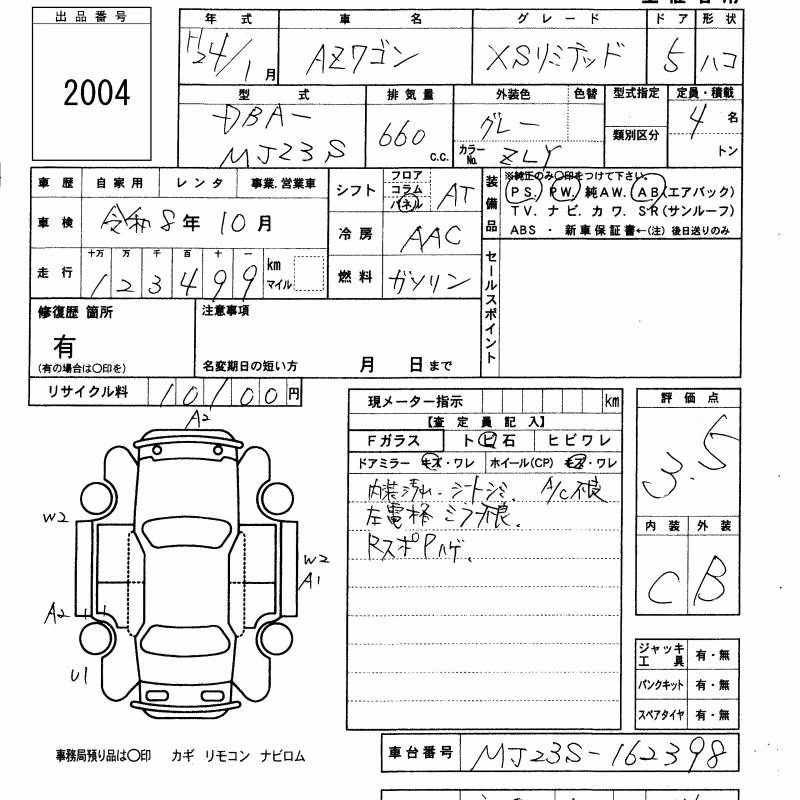 出品番号
2004
年式 車名 グレード ドア 形状
H24/1月 AZワゴン XSリミテッド 5 ハコ
型式 排気量 外装色 色替 型式指定 定員・積載
DBA-
MJ23S
660 c.c.
グレー
カラーNo. ZLY
類別区分
4名
トン
車歴 自家用 レンタ 事業.営業車
車検 令和8年10月
走行 十万 万 千 百 十 一
123499 km マイル
シフト フロア コラム パネル AT
冷房 AAC
燃料 ガソリン
装備品
※純正のみ〇印をつけて下さい。
PS. PW. 純AW. AB(エアバック)
TV. ナビ. カワ. SR(サンルーフ)
ABS ・ 新車保証書←(注) 後日送りのみ
セールスポイント
修復歴 箇所
有
(有の場合は〇印を)
注意事項
名変期日の短い方 月 日まで
リサイクル料 10100円
現メーター指示 km
【査定員記入】
Fガラス ト ビ 石 ヒビワレ
ドアミラー キズ・ワレ ホイール(CP) キズ・ワレ
内装汚れ. シートシミ. A/C不良
左電格ミラー不良.
RスポPハゲ.
評価点
3.5
内装 外装
C B
A2
W2
W2
A1
A2
U1
ジャッキ工具 有・無
パンクキット 有・無
スペアタイヤ 有・無
事務局預り品は〇印 カギ リモコン ナビロム
車台番号 MJ23S-162398